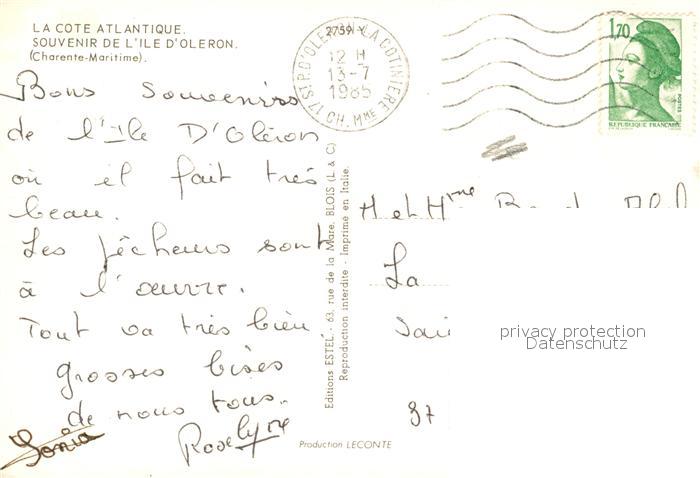 LA COTE ATLANTIQUE.
SOUVENIR DE L'ILE D'OLERON.
(Charente-Maritime).
2759
17 ST P. D'OLERON-LA COTINIERE
12 H
13-7
1985
CH. MME
1,70
POSTES
REPUBLIQUE FRANÇAISE
Bons Souvenirs
de l'Ile D'Oléron
où il fait très
beau.
Les pêcheurs sont
à l'œuvre.
Tout va très bien
grosses bises
de nous tous.
Sonia
Roselyne
Editions ESTEL - 63, rue de la Mare, BLOIS (L & C)
Reproduction interdite - Imprimé en Italie.
M et Mme
La
37
privacy protection
Datenschutz
Production LECONTE